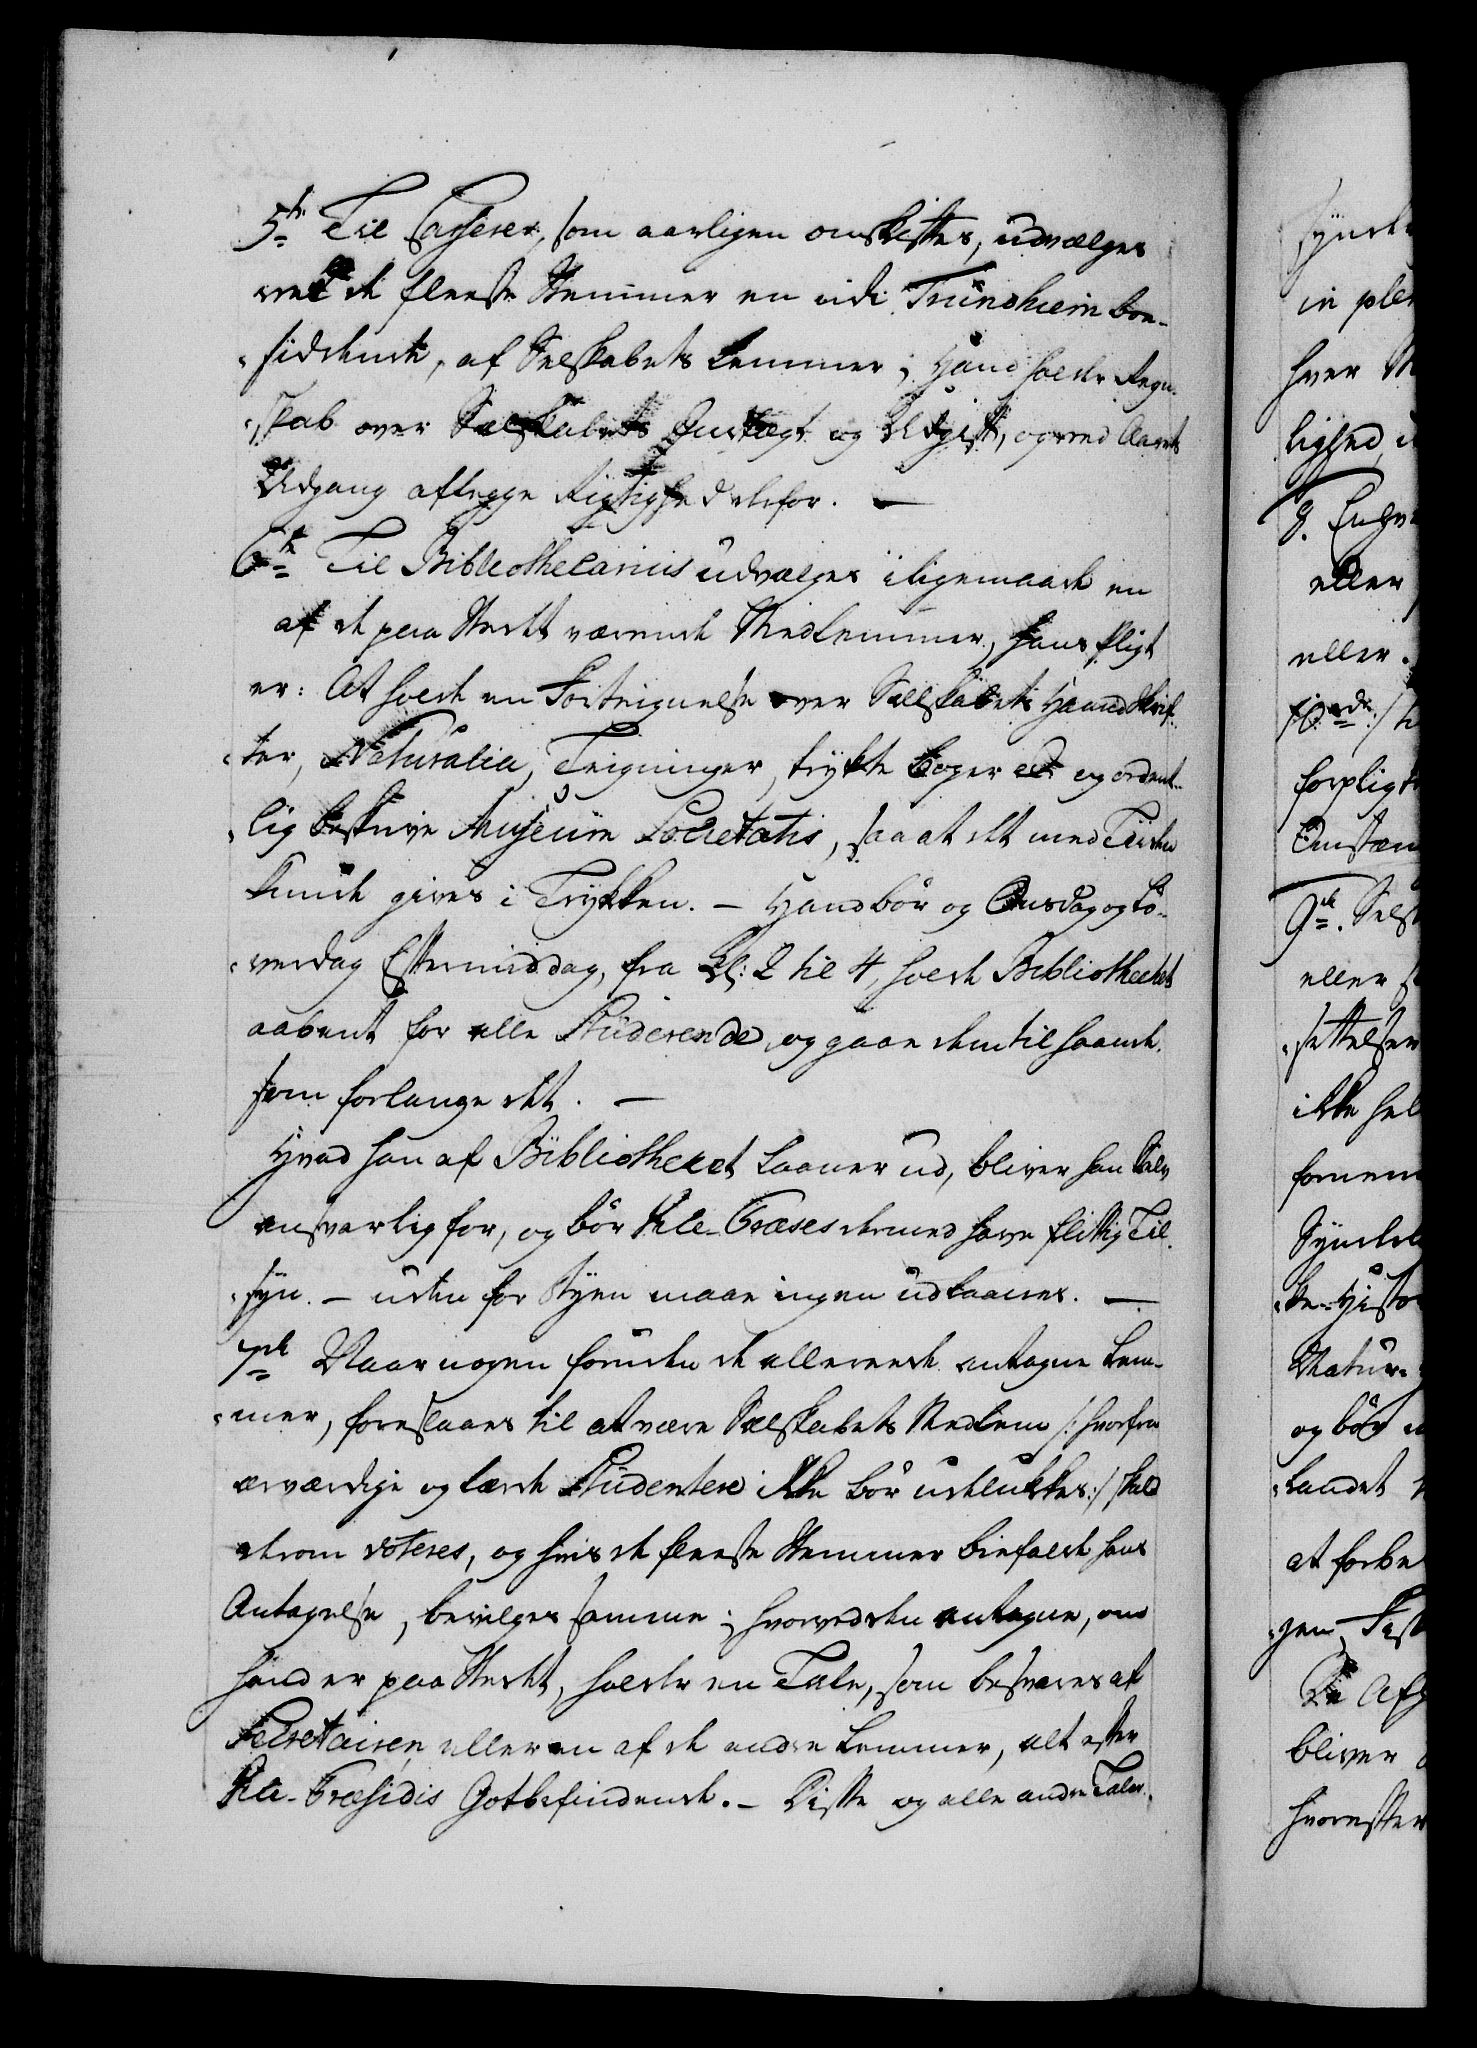 5te Til Casserer, som aarligen omskiftes, udvælges
ved de fleeste Stemmer en udi Trundhiem boe-
siddende, af Selskabets Lemmer; Hand holder Regn-
skab over Selskabets Indtægt og Udgift, og ved Aarets
Udgang aflegge Rigtighed derfor. —
6te Til Bibliothecarius udvælges i ligemaade en
af de paa Stedet værende Medlemmer, hans Pligt
er: At holde en Fortegnelse over Selskabets Haandskrif-
ter, Naturalia, Teigninger, trykte Bøger etc og ordent-
lig beskrive Museum Societatis, saa at det med Tiden
kunde gives i Trykken. — Hand bør og Onsdag og Lø-
verdag Eftermiddag, fra Kl: 2 til 4, holde Bibliothecket
aabent for alle Studerende, og gaae dem til haande
som forlange det. —
Hvad han af Bibliothecet Laaner ud, bliver han selv
ansvarlig for, og bør Vice-Præses dermed have flittig Til-
syn. — uden for Byen maae ingen udlaanes. —
7de Naar nogen foruden de allereede antagne Lem-
mer, foreslaaes til at være Selskabets Medlem /: hvorfra
ærværdige og lærde Studentere ikke bør udelukkes :/ skal
derom voteres, og hvis de fleeste Stemmer biefalde hans
Antagelse, bevilges samme; hvorved den antagne, om
hand er paa Stedet, holder en Tale, som besvares af
Secretairen, eller en af de andre Lemmer, alt efter
Vice-Præsidis Gotbefindende. — Disse og alle andre Taler
synde
in ple
hver
lighed
8.
eller
eller
forpligt
9de. Selsk
eller
settelser
ikke hel
fornem
Histo
Natur-
og bør
Landet
at forbe
gen
De Af
bliver
hvorefter